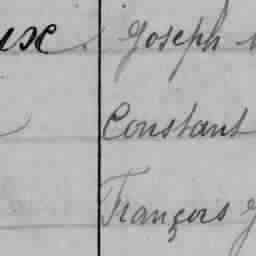 ux Joseph
Constant
François